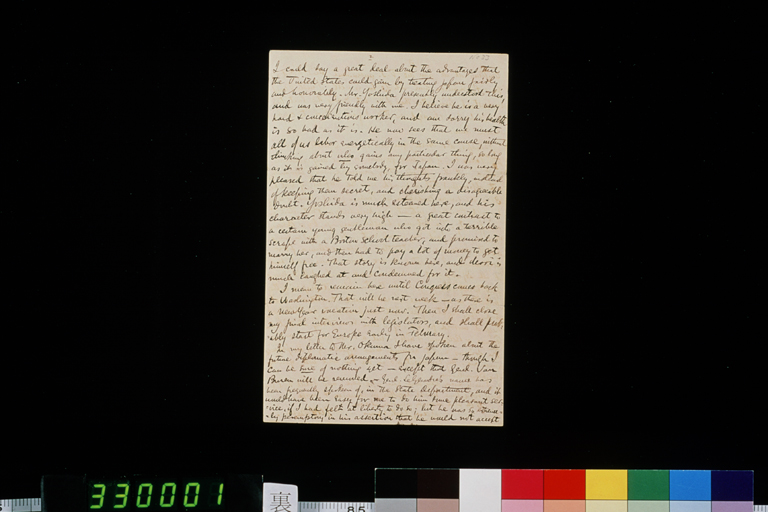 2
I could say a great deal about the advantages that
the United States could gain by treating Japan fairly
and honorably. Mr. Yoshida presently understood this,
and was very friendly with me. I believe he is a very
hard & conscientious worker, and am sorry his health
is so bad as it is. He now sees that we must
all of us labor energetically in the same cause, without
thinking about who gains any particular thing, so long
as it is gained by somebody, for Japan. I was very
pleased that he told me his thoughts frankly, instead
of keeping them secret, and cherishing a disagreeable
doubt. Yoshida is much esteemed here, and his
character stands very high — a great contrast to
a certain young gentleman who got into a terrible
scrape with a Boston school teacher, and promised to
marry her, and then had to pay a lot of money to get
himself free. That story is known here, and is
much laughed at and condemned for it.
I mean to remain here until Congress comes back
to Washington. That will be next week — as there is
a New Year vacation just now. Then I shall close
my final interviews with legislators, and shall prob-
ably start for Europe early in February.
In my letter to Mr. Okuma I have spoken about the
future diplomatic arrangements for Japan — though I
can be sure of nothing yet — except that Genl. Van
Buren will be removed. Genl. name has
been frequently spoken of, in the State Department, and it
would have been easy for me to do him some pleasant ser-
vice, if I had felt at liberty to do so; but he was so
peremptory in his assertion that he would not accept
330001
裏
85